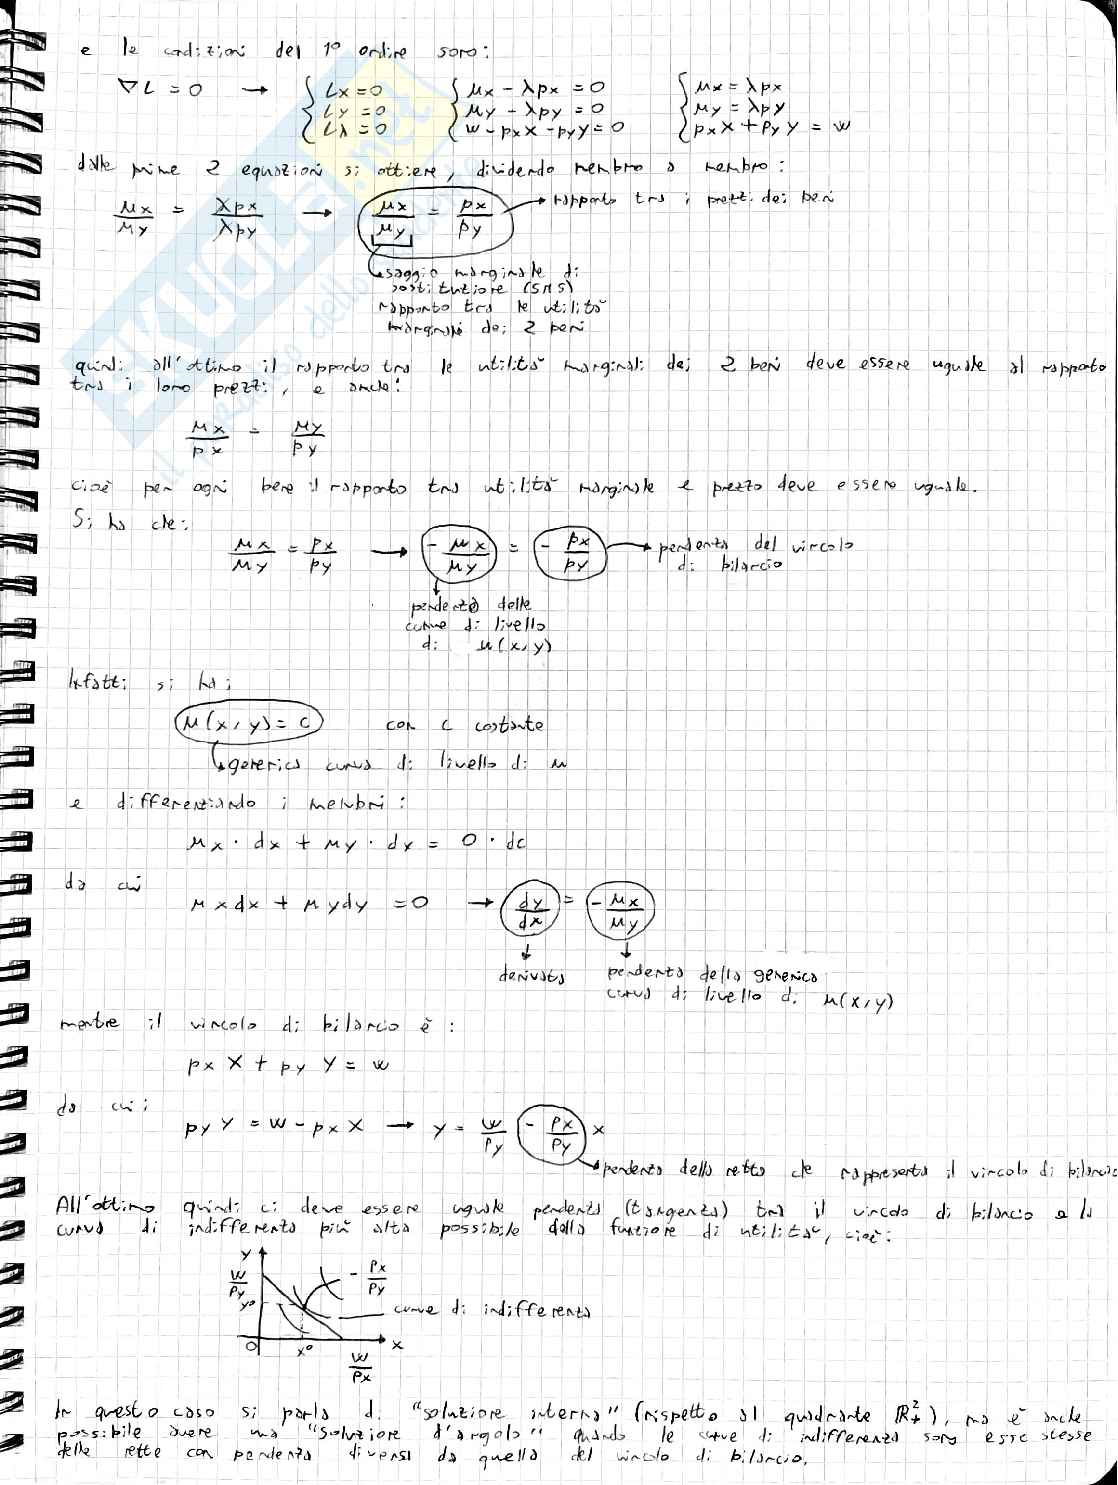 e le condizioni del 1° ordine sono:
∇L = 0 → { Lx = 0 { μx - λpx = 0 { μx = λpx
Ly = 0 μy - λpy = 0 μy = λpy
Lλ = 0 w - pxX - pyY = 0 pxX + pyY = w
dalle prime 2 equazioni si ottiene, dividendo membro a membro:
μx/μy = λpx/λpy → μx/μy = px/py → rapporto tra i prezzi dei beni
saggio marginale di
sostituzione (SMS)
rapporto tra le utilità
marginali dei 2 beni
quindi all'ottimo il rapporto tra le utilità marginali dei 2 beni deve essere uguale al rapporto
tra i loro prezzi, e anche:
μx/px = μy/py
cioè per ogni bene il rapporto tra utilità marginale e prezzo deve essere uguale.
Si ha che:
μx/μy = px/py → - μx/μy = - px/py → pendenza del vincolo
di bilancio
pendenza delle
curve di livello
di u(x,y)
Infatti si ha:
μ(x,y) = c con c costante
generica curva di livello di u
e differenziando i membri:
μx · dx + μy · dy = 0 · dc
da cui
μxdx + μydy = 0 → dy/dx = - μx/μy
derivata pendenza della generica
curva di livello di u(x,y)
mentre il vincolo di bilancio è:
px X + py Y = w
da cui:
py Y = w - px X → y = w/py - px/py x
pendenza della retta che rappresenta il vincolo di bilancio
All'ottimo quindi ci deve essere uguale pendenza (tangenza) tra il vincolo di bilancio e la
curva di indifferenza più alta possibile della funzione di utilità, cioè:
y
w/py - px/py
y°
curve di indifferenza
0 x° w/px x
In questo caso si parla di "soluzione interna" (rispetto al quadrante ℝ²₊), ma è anche
possibile avere una "soluzione d'angolo" quando le curve di indifferenza sono esse stesse
delle rette con pendenza diversa da quella del vincolo di bilancio.
SKUOLA.net